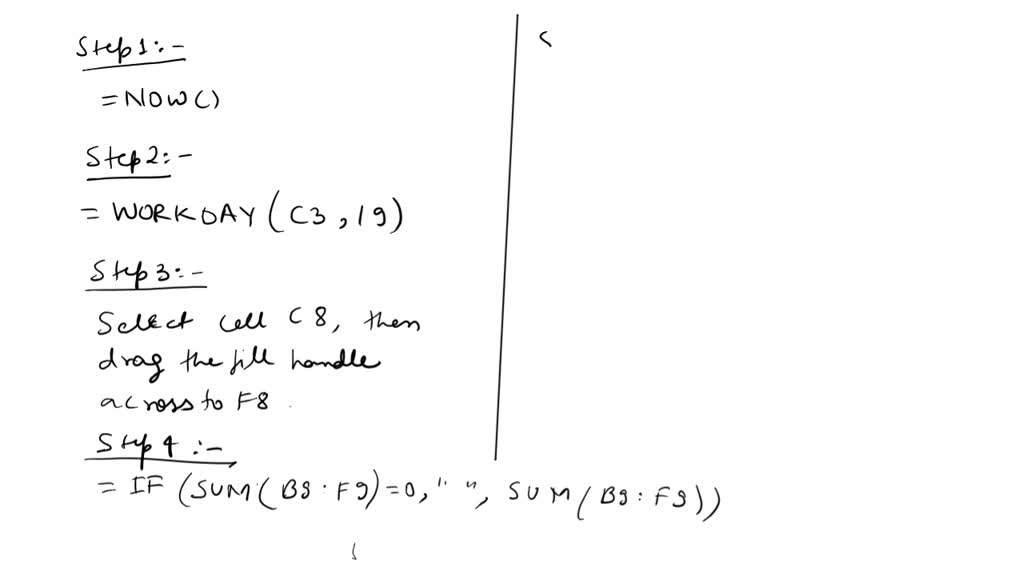 Step 1:-
= NOW()
Step 2:-
= WORKDAY (C3, 19)
Step 3:-
Select cell C8, then
drag the fill handle
across to F8.
Step 4:-
= IF (SUM(B9:F9)=0, " ", SUM(B9:F9))